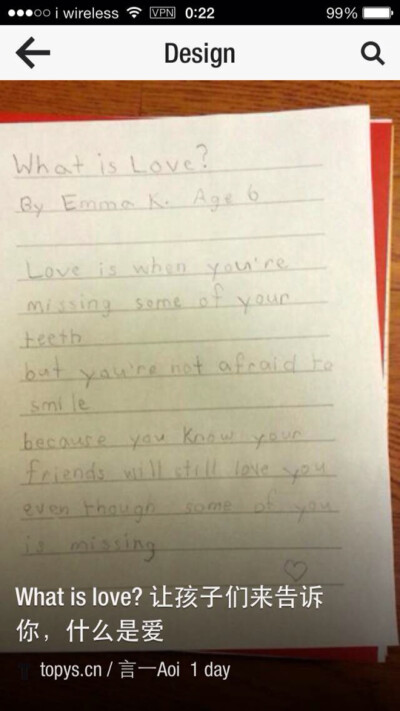 i wireless VPN 0:22 99%
Design
What is Love?
By Emma K. Age 6
Love is when you're
missing some of your
teeth
but you're not afraid to
smile
because you know your
friends will still love you
even though some of you
is missing
What is love? 让孩子们来告诉
你，什么是爱
topys.cn / 言一Aoi 1 day